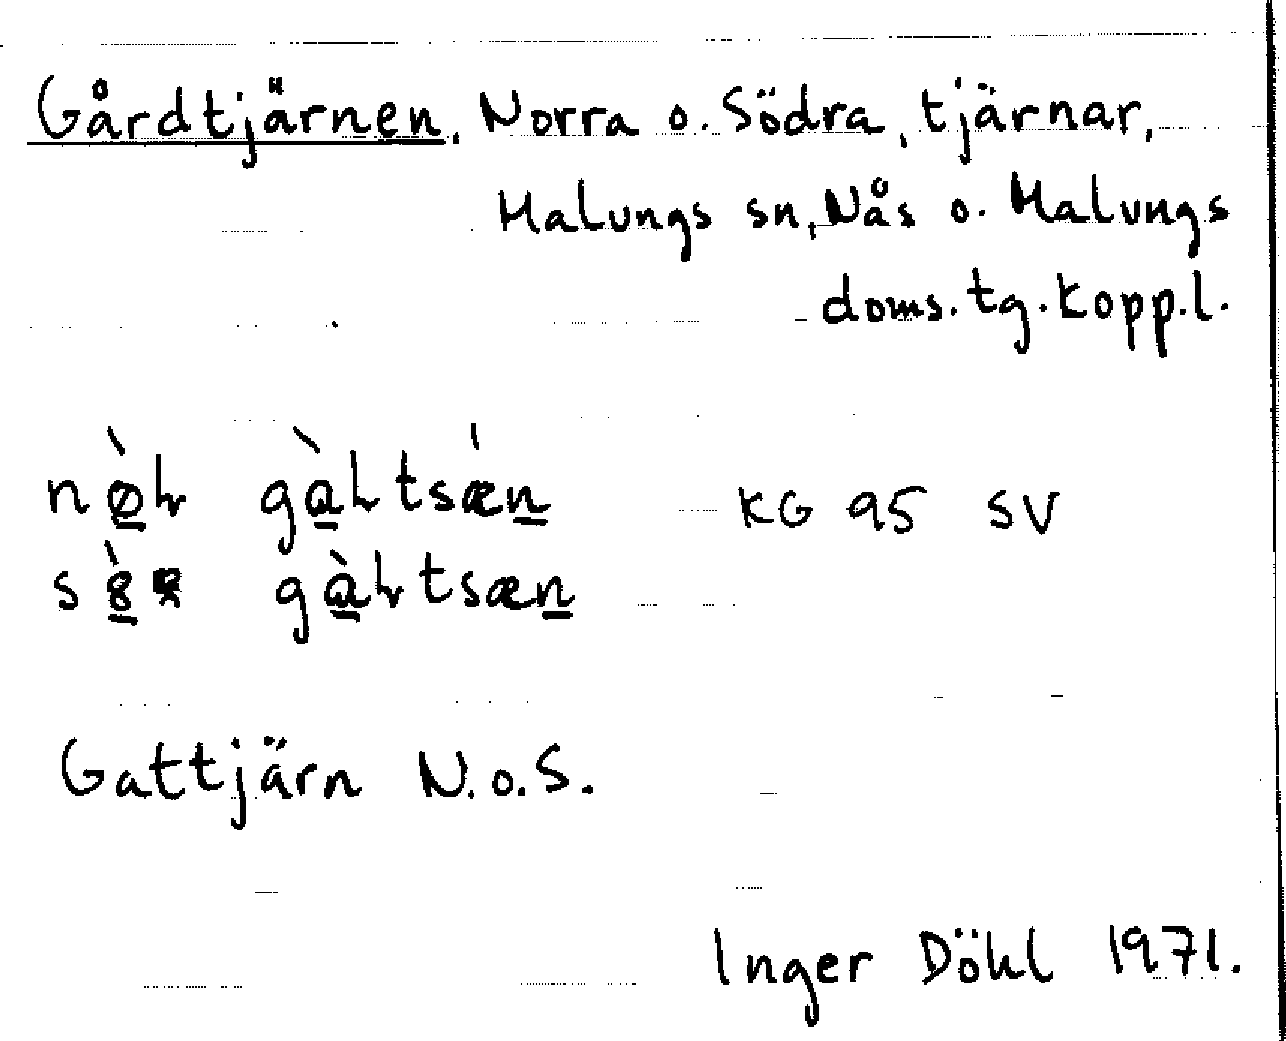 Gårdtjärnen, Norra o. Södra, tjärnar,
Malungs sn, Nås o. Malungs
doms. tg. Kopp.l.
KG 95 SV
Gattjärn N.o.S.
Inger Döhl 1971.